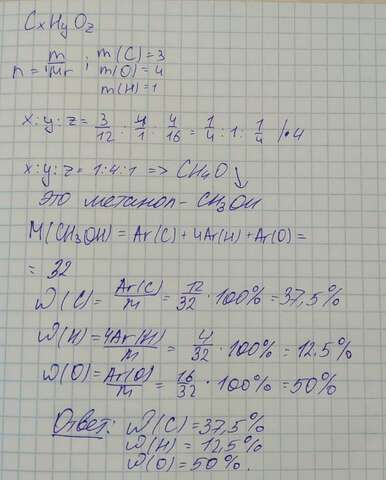 CxHyOz
n = m/Mr ; m(C) = 3
m(O) = 4
m(H) = 1
x:y:z = 3/12 : 4/1 : 4/16 = 1/4 : 1 : 1/4 | · 4
x:y:z = 1:4:1 => CH4O
Это метанол - CH3OH
M(CH3OH) = Ar(C) + 4Ar(H) + Ar(O) =
= 32
ω(C) = Ar(C)/M = 12/32 · 100% = 37,5%
ω(H) = 4Ar(H)/M = 4/32 · 100% = 12.5%
ω(O) = Ar(O)/M = 16/32 · 100% = 50%
Ответ: ω(C) = 37,5%
ω(H) = 12,5%
ω(O) = 50%.